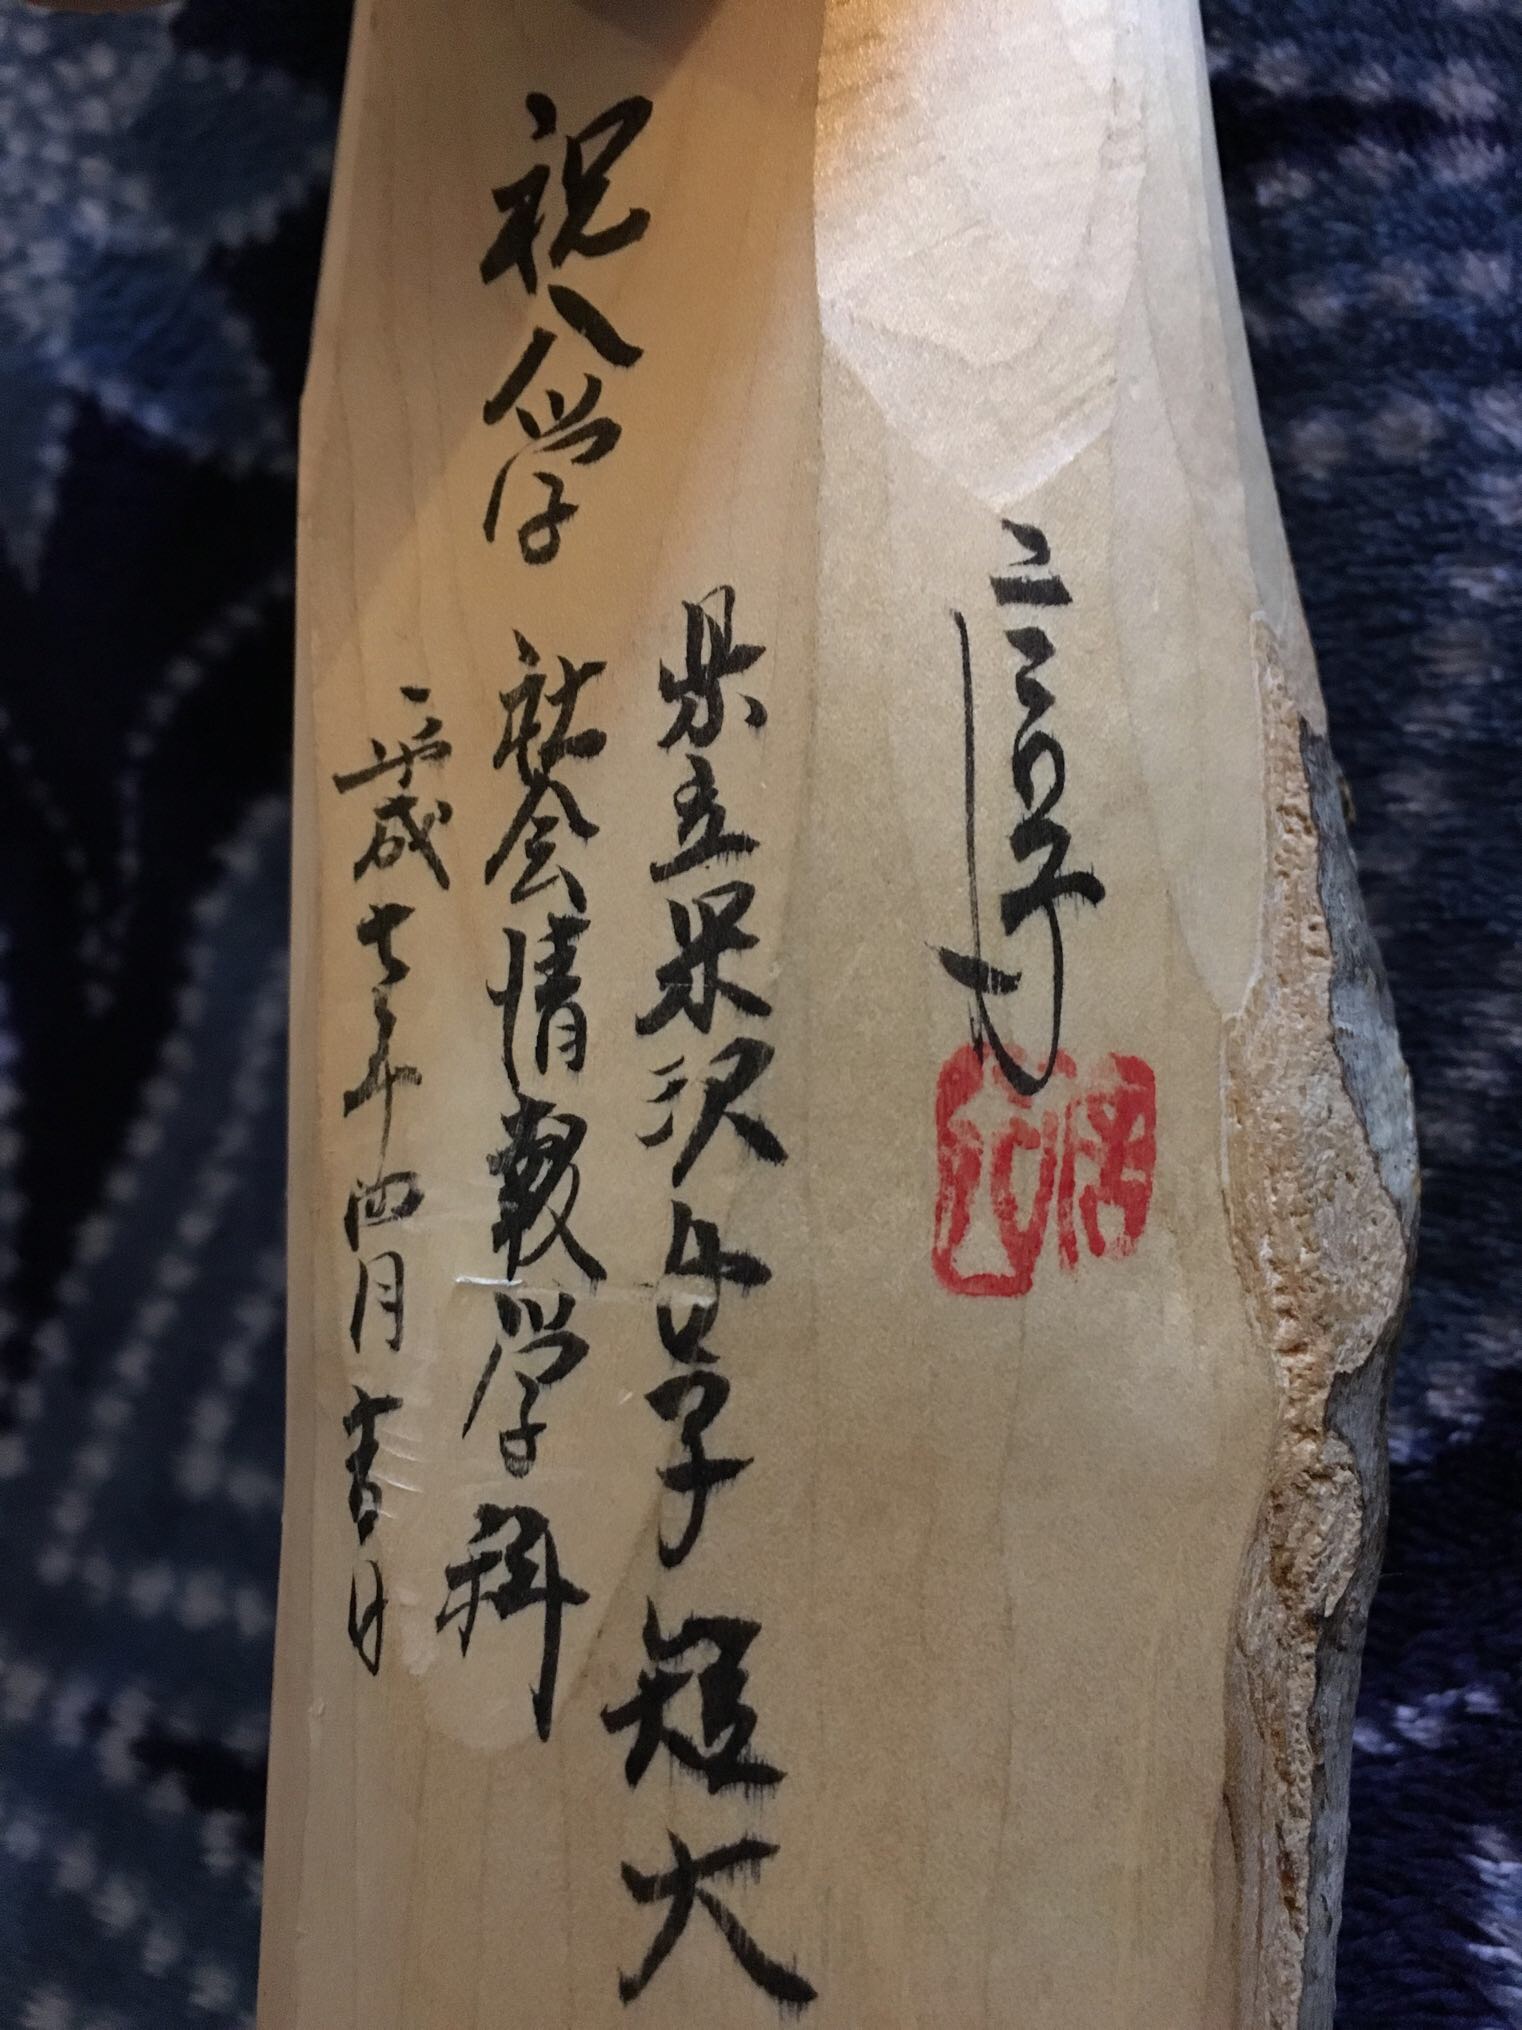 祝入学
県立米沢女子短大
社会情報学科
平成七年四月吉日